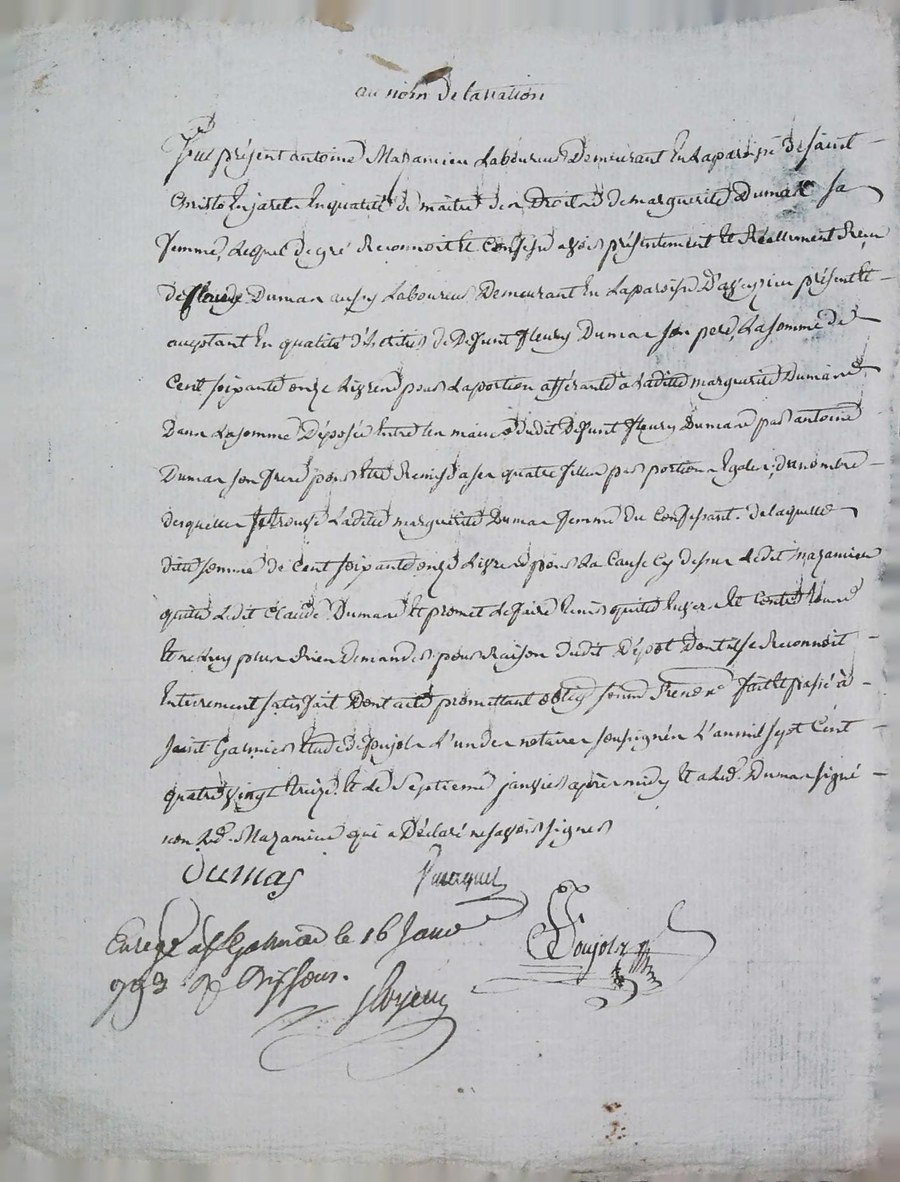 au nom de la nation
Fut présent antoine Mazamieu Laboureur Demeurant En La paroisse de saint
Christo En jaret En qualité de maitre des Droits de marguerite Dumas sa
femme, Lequel de gré Reconnoit et Confesse avoir présentement et Réellement Reçu
de Dumas aussy Laboureur Demeurant En La paroisse D'aveyzieu présent et
aceptant En qualité d'héritier de Deffunt fleury Dumas son pere, La somme de
Cent soixante onze Livres pour La portion afférante à Ladite marguerite Dumas
Dans La somme Déposée Entre les mains dudit Defunt fleury Dumas par antoine
Dumas son frere pour Etre Remise a ses quatre filles par portions Egales, du nombre
desquelles se trouve Ladite marguerite Dumas femme du Confessant. de laquelle
dite somme de Cent soixante onze Livres pour La Cause Cy dessus Ledit mazamieu
quitte Ledit Claude Dumas Et promet Le faire tenir quitte Envers Et Contre tous
Et ne Luy plus Rien Demander pour Raison dudit Dépot Dont il se Reconnoit
Entierement satisfait Dont acte promettant oblig. soum. Renon. fait et passé à
saint Galmier Etude de Poujols L'un des notaires soussignés L'an mil sept Cent
quatre vingt treize Et Le Septieme janvier après midy Et a Led. Dumas signé
non Led. Mazamieu qui a Déclaré ne savoir signer
Dumas
Poujols
Enregé a St Galmier le 16 Janv
793 Dix sous.